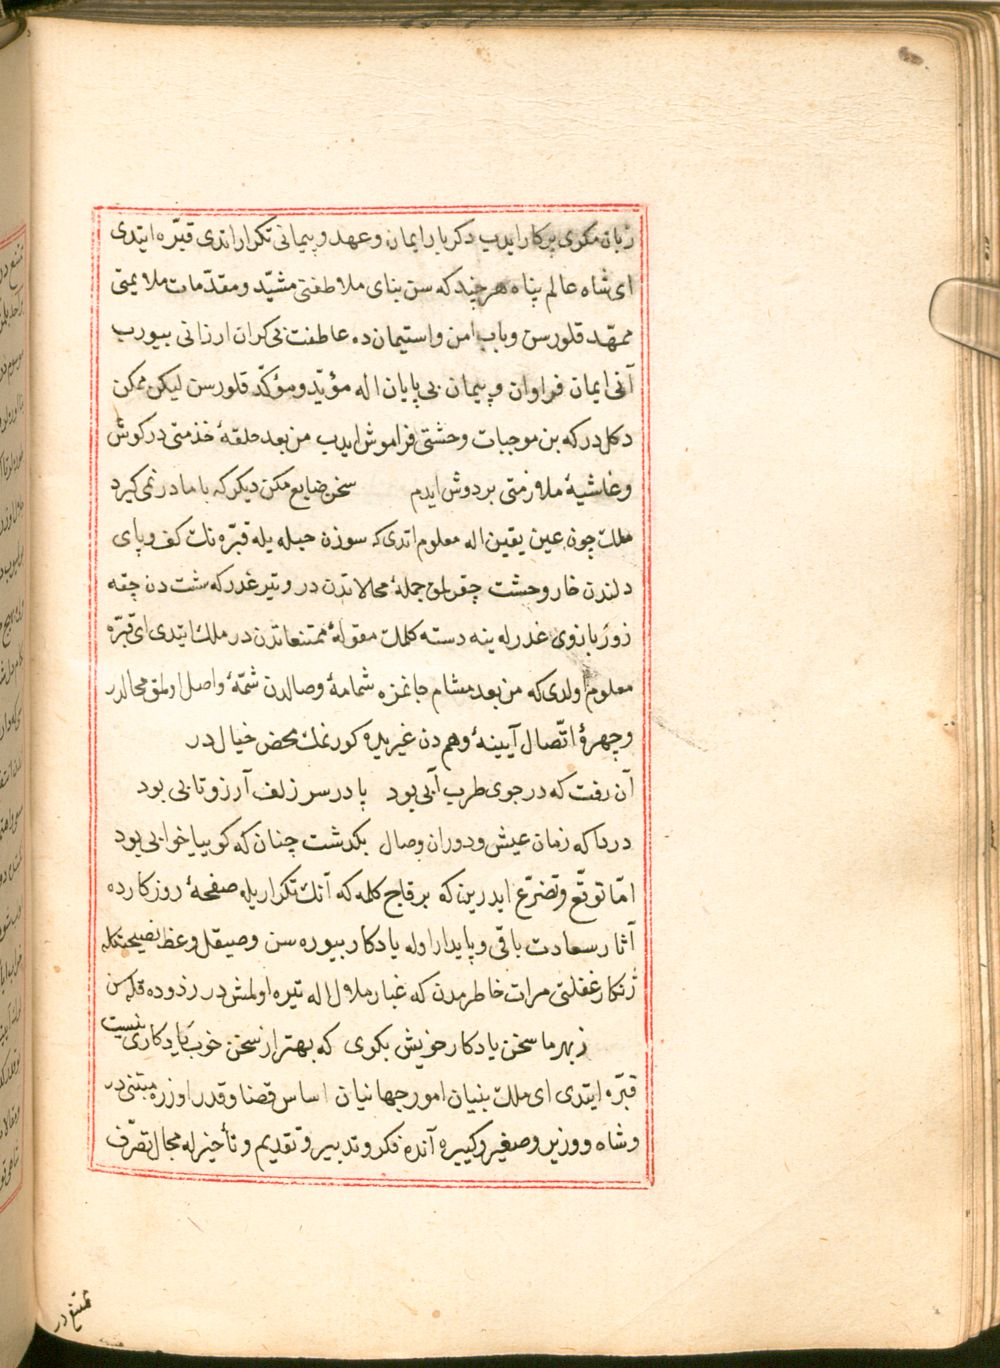 زبان مكری پركار ایدب دكریار ایمان و عهد و پیمانی تكرار اتدی قبّره ایتدی
ای شاه عالم پناه هر چند كه سن بنای ملاطفتی مشیّد و مقدّمات ملایمتی
ممهّد قلورسن و باب امن و استیمان ده عاطفت بی كران ارزانی بیورب
آنی ایمان فراوان و پیمان بی پایان اله مؤیّد و مؤكّد قلورسن لیكن ممكن
دكلدر كه بن موجبات وحشتی فراموش ایدب من بعد حلقۀ خذمتی در كوش
و غاشیۀ ملازمتی بر دوش ایدم سخن ضایع مكن دیكر كه با ما در نمی كیرد
ملك چون عین یقین اله معلوم اتدی كه سوزن حیله یله قبّره نك كف پای
دلندن خار وحشت چقرلمق جملۀ محالاتدن در و تیر غدر كه شست دن چقه
زور بازوی غدرله ینه دسته كلمك مقولۀ ممتنعاتدن در ملك ایتدی ای قبّره
معلوم اولدی كه من بعد مشام جانمزه شمامۀ وصالدن شمّۀ واصل اولمق محالدر
و چهرۀ اتّصال آیینۀ وهم دن غیریده كورنمك محض خیال در
آن رفت كه در جوی طرب آبی بود یا در سر زلف آرزو تابی بود
دردا كه زمان عیش و دوران وصال بكذشت چنان كه كوییا خوابی بود
امّا توقّع و تضرّع ایدرین كه بر قاچ كلمه كه آنك تكراریله صفحۀ روزكارده
آثار سعادت باقی و پایدار اوله یادكار بیوره سن و صیقل وعظ نصیحتكله
ژنكار غفلتی مرات خاطرمدن كه غبار ملال اله تیره اولمش در رذوده قله سن
ز بهر ما سخن یادكار خویش بكوی كه بهتر از سخن خوب یادكاری نیست
قبّره ایتدی ای ملك بنیان امور جهانیان اساس قضا و قدر اوزره مبتنی در
و شاه و وزیر و صغیر و كبیره آنده فكر و تدبیر و تقدیم و تأخیرله مجال تصرّف
ممتنع در